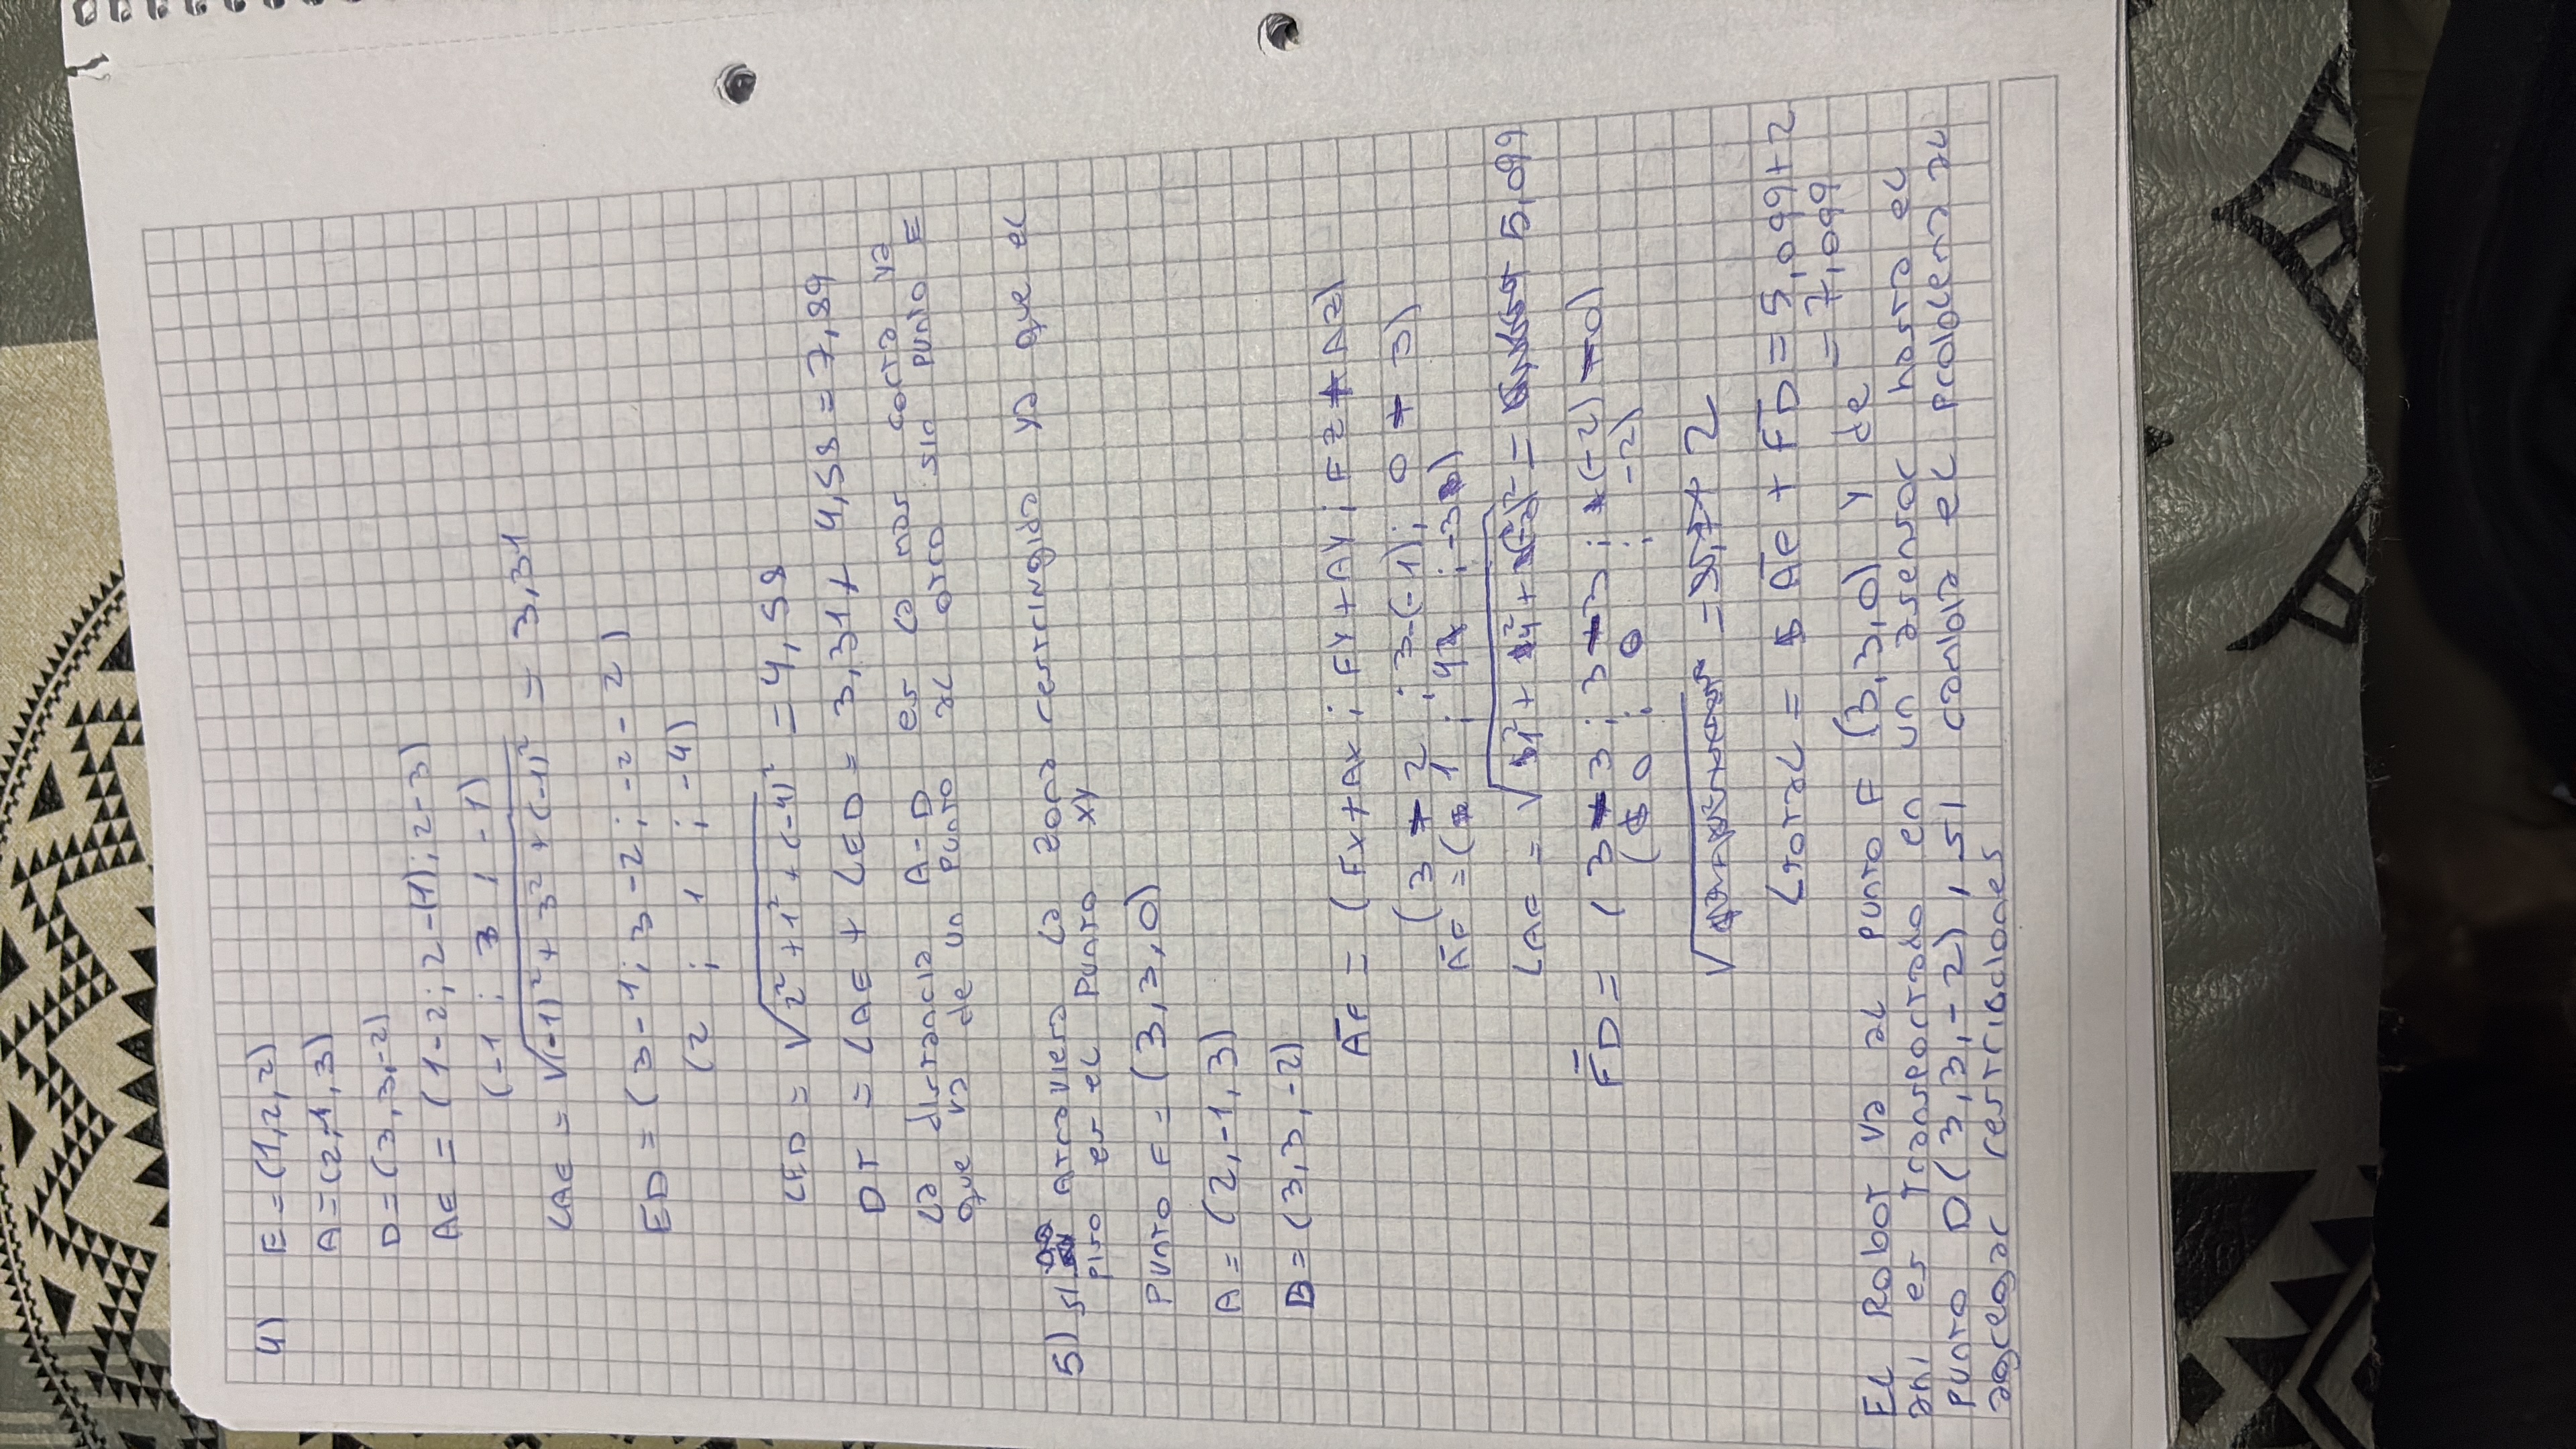 4) E = (1,2,2)
A = (2,-1,3)
D = (3,3,-2)
AE = (1-2; 2-(-1); 2-3)
(-1 ; 3 ; -1)
LAE = √(-1)² + 3² + (-1)² = 3,31
ED = (3-1; 3-2; -2-2)
(2 ; 1 ; -4)
LED = √2² + 1² + (-4)² = 4,58
DT = LAE + LED = 3,31 + 4,58 = 7,89
La distancia A-D es la mas corta ya
que va de un punto al otro sin punto E
5) si atraviesa la zona restringida ya que el
piso es el punto xy
Punto F = (3,3,0)
A = (2,-1,3)
D = (3,3,-2)
AF = (Fx+Ax ; FY+AY ; Fz - Az)
(3 - 2 ; 3-(-1) ; 0 - 3)
AF = ( 1 ; 4 ; -3)
LAF = √1² + 4² + (-3)² = 5,099
FD = ( 3 - 3 ; 3 - 3 ; (-2) - 0)
( 0 ; 0 ; -2)
= 2
Ltotal = AF + FD = 5,099 + 2
= 7,099
El Robot va al punto F (3,3,0) y de
ahi es transportado en un asensor hasta el
punto D (3,3,-2), si cambia el problema al
agregar restribciones